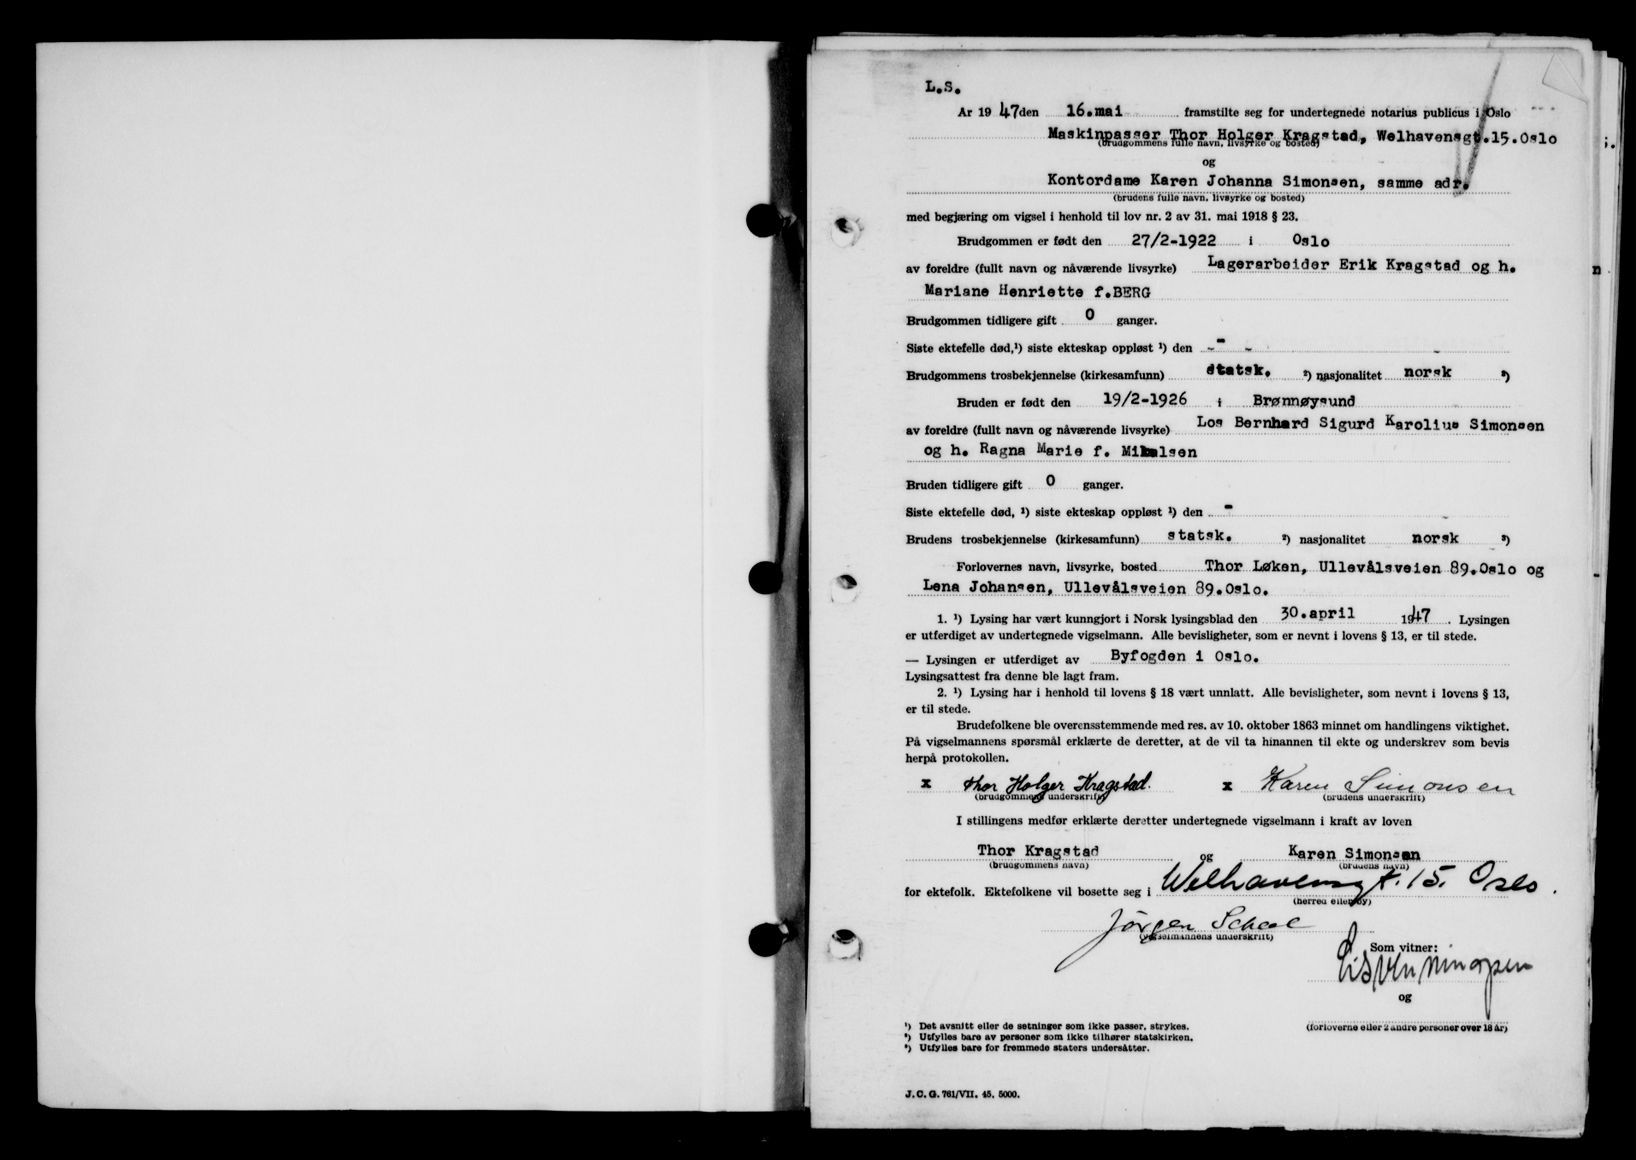 L.S.
År 1947 den 16.mai framstilte seg for undertegnede notarius publicus i Oslo
Maskinpasser Thor Holger Kragstad, Welhavensgt.15.Oslo
(brudgommens fulle navn, livsyrke og bosted)
og
Kontordame Karen Johanna Simonsen, samme adr.
(brudens fulle navn, livsyrke og bosted)
med begjæring om vigsel i henhold til lov nr. 2 av 31. mai 1918 § 23.
Brudgommen er født den 27/2-1922 i Oslo
av foreldre (fullt navn og nåværende livsyrke) Lagerarbeider Erik Kragstad og h.
Mariane Henriette f.BERG
Brudgommen tidligere gift 0 ganger.
Siste ektefelle død,¹) siste ekteskap oppløst ¹) den - - -
Brudgommens trosbekjennelse (kirkesamfunn) statsk. ²) nasjonalitet norsk ³)
Bruden er født den 19/2-1926 i Brønnøysund
av foreldre (fullt navn og nåværende livsyrke) Los Bernhard Sigurd Karolius Simonsen
og h. Ragna Marie f.
Bruden tidligere gift 0 ganger.
Siste ektefelle død, ¹) siste ekteskap oppløst ¹) den -
Brudens trosbekjennelse (kirkesamfunn) statsk. ²) nasjonalitet norsk ³)
Forlovernes navn, livsyrke, bosted Thor Løken, Ullevålsveien 89.Oslo og
Lena Johansen, Ullevålsveien 89.Oslo.
1. ¹) Lysing har vært kunngjort i Norsk lysingsblad den 30.april 1947. Lysingen
er utferdiget av undertegnede vigselmann. Alle bevisligheter, som er nevnt i lovens § 13, er til stede.
— Lysingen er utferdiget av Byfogden i Oslo.
Lysingsattest fra denne ble lagt fram.
2. ¹) Lysing har i henhold til lovens § 18 vært unnlatt. Alle bevisligheter, som nevnt i lovens § 13,
er til stede.
Brudefolkene ble overensstemmende med res. av 10. oktober 1863 minnet om handlingens viktighet.
På vigselmannens spørsmål erklærte de deretter, at de vil ta hinannen til ekte og underskrev som bevis
herpå protokollen.
x Thor Holger Kragstad. x Karen Simonsen
(brudgommens underskrift) (brudens underskrift)
I stillingens medfør erklærte deretter undertegnede vigselmann i kraft av loven
Thor Kragstad og Karen Simonsen
(brudgommens navn) (brudens navn)
for ektefolk. Ektefolkene vil bosette seg i Welhavensgt. 15. Oslo.
(herred eller by)
Jörgen
(vigselmannens underskrift)
Som vitner:
og
(forloverne eller 2 andre personer over 18 år)
¹) Det avsnitt eller de setninger som ikke passer, strykes.
²) Utfylles bare av personer som ikke tilhører statskirken.
³) Utfylles bare for fremmede staters undersåtter.
J. C. G. 761/VII. 45. 5000.